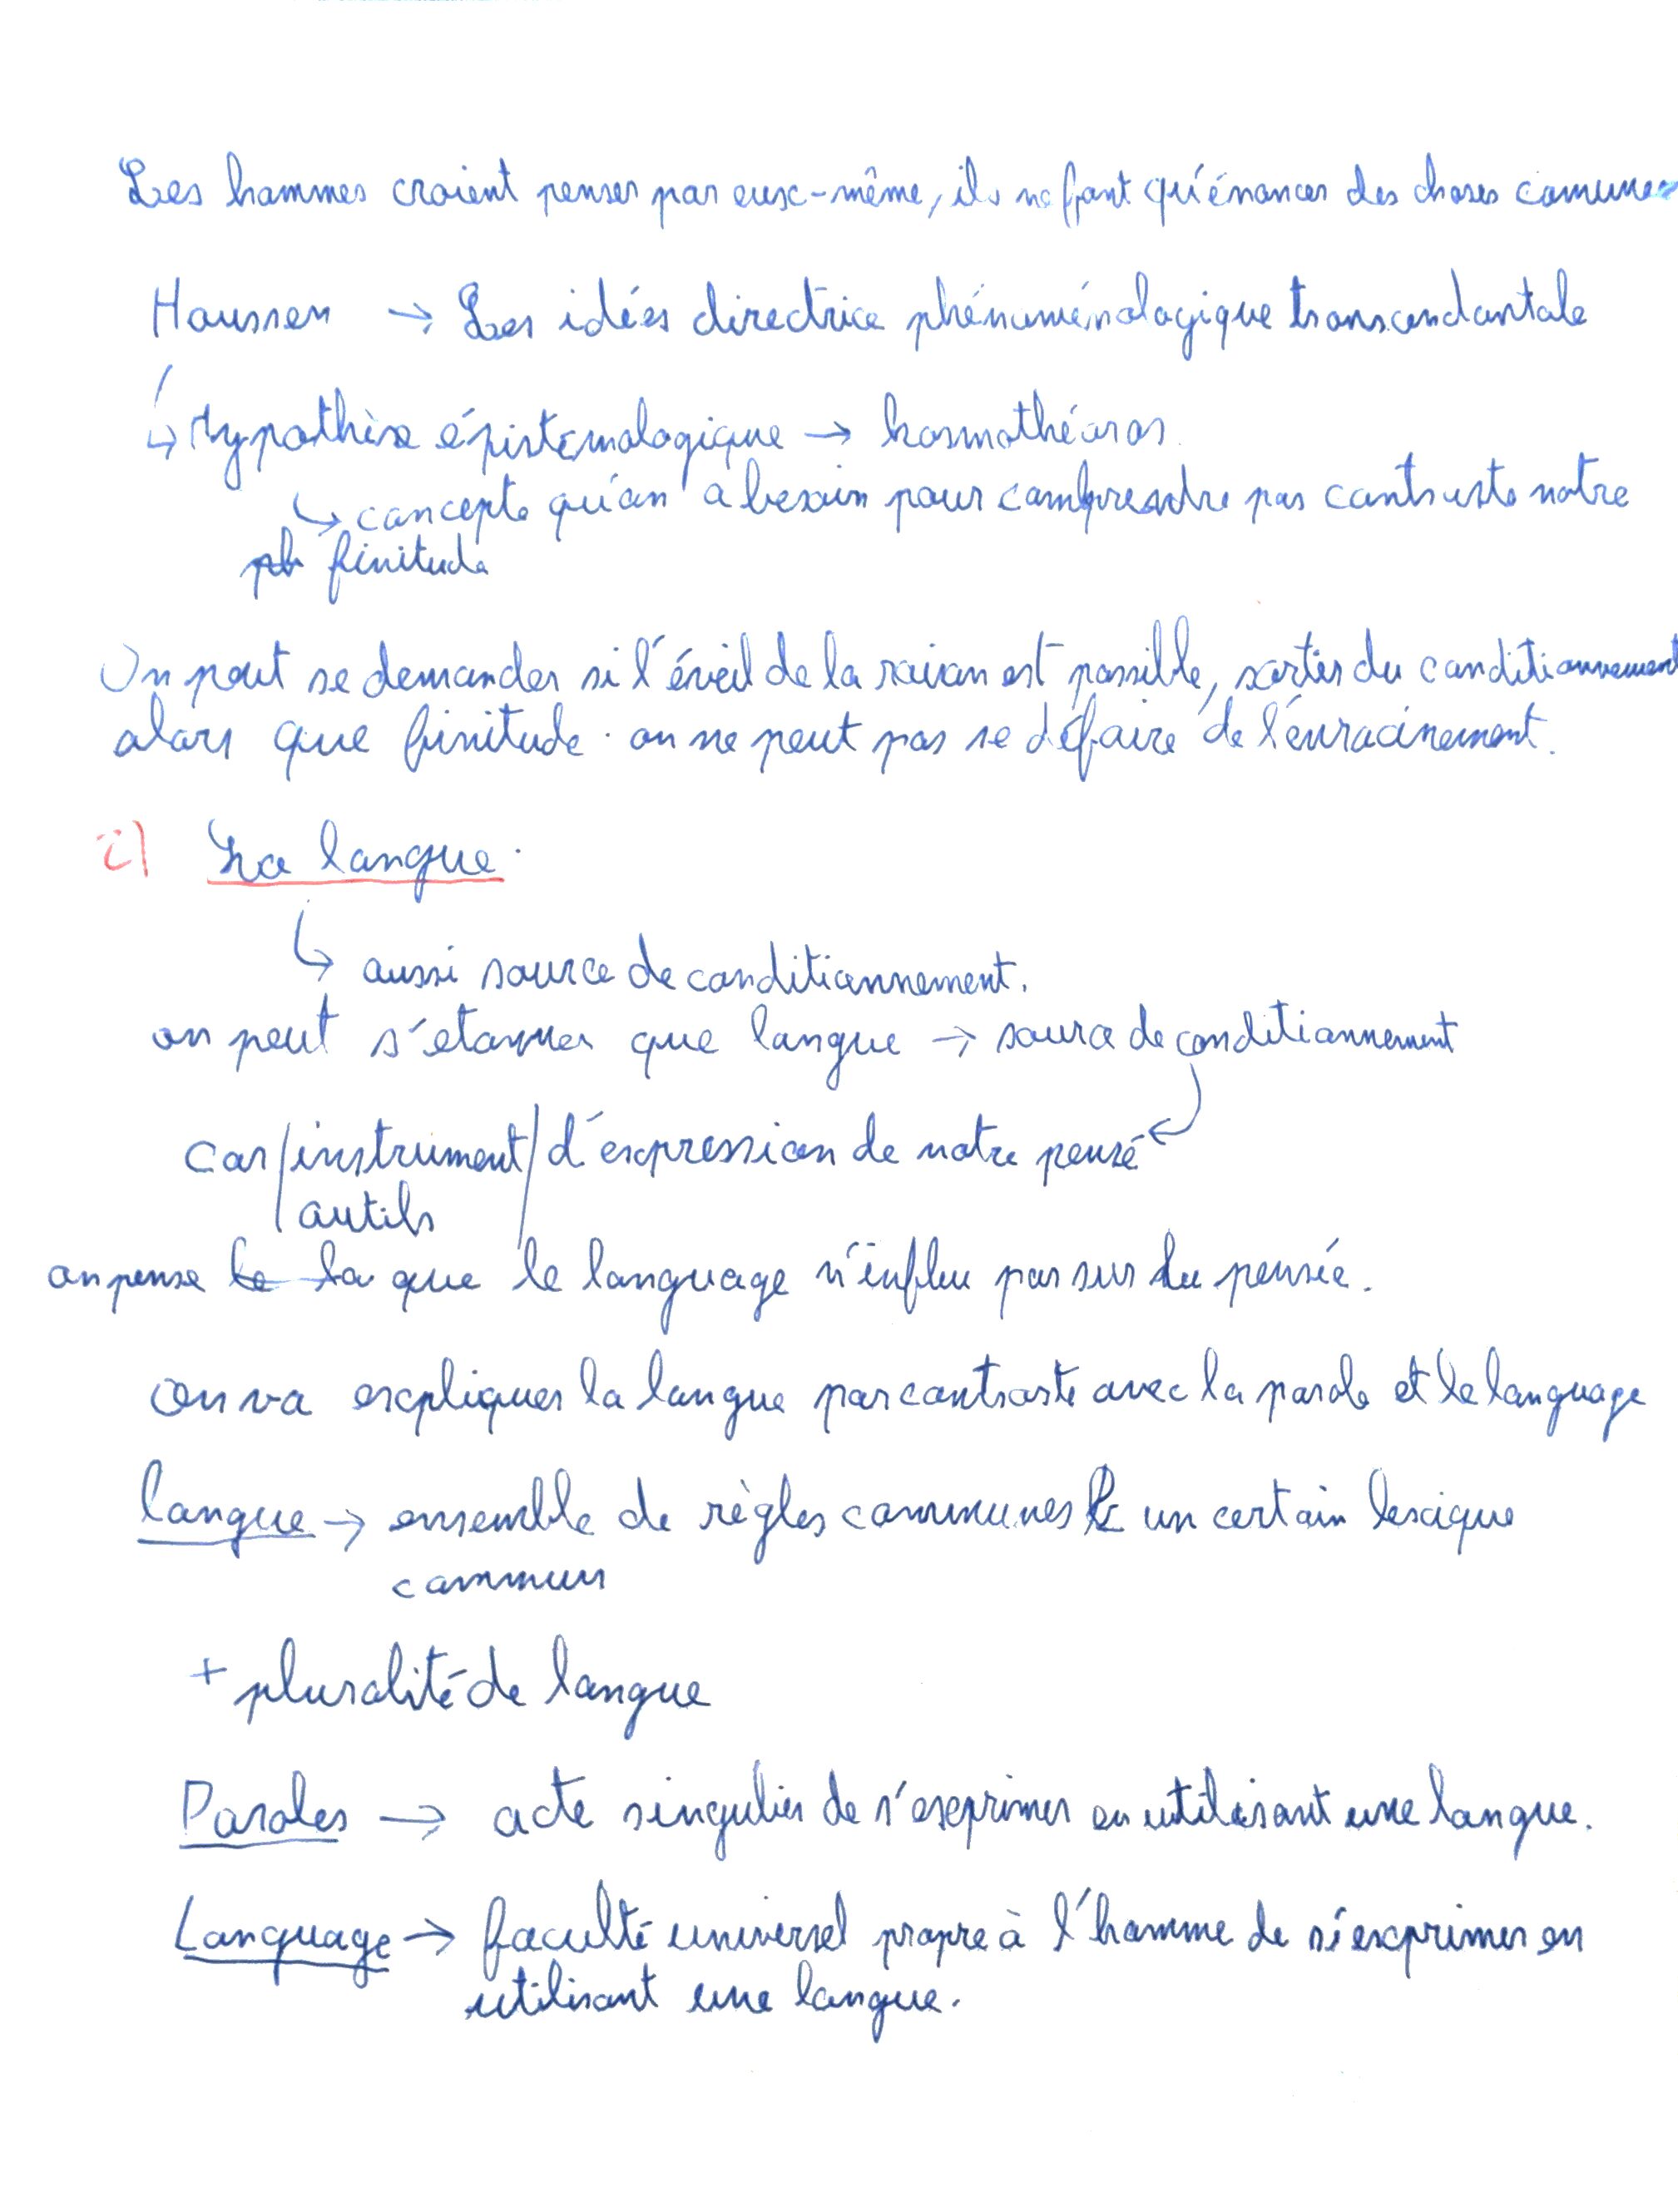 Les hommes croient penser par eux-même, ils ne font qu'énoncer des choses comunes
Housser → Les idées directrice phénoménologique transcendantale
↳ Hypothèse épistemologique → kosmothéoros
↳ concepte qu'on a besoin pour comprendre par contraste notre
finitude
On peut se demander si l'éveil de la raison est possible, sortir du conditionnement
alors que finitude. on ne peut pas se défaire de l'enracinement.
c) La langue.
↳ aussi source de conditionnement.
on peut s'étonner que langue → source de conditionnement
car / instrument / d'expression de notre pensé
outils
on pense le la que le language n'influ pas sur la pensée.
on va expliquer la langue par contraste avec la parole et le language
langue → ensemble de règles communes & un certain lexique
commun
+ pluralité de langue
Paroles → acte singulier de s'exprimer en utilisant une langue.
Language → faculté universel propre à l'homme de s'exprimer en
utilisant une langue.